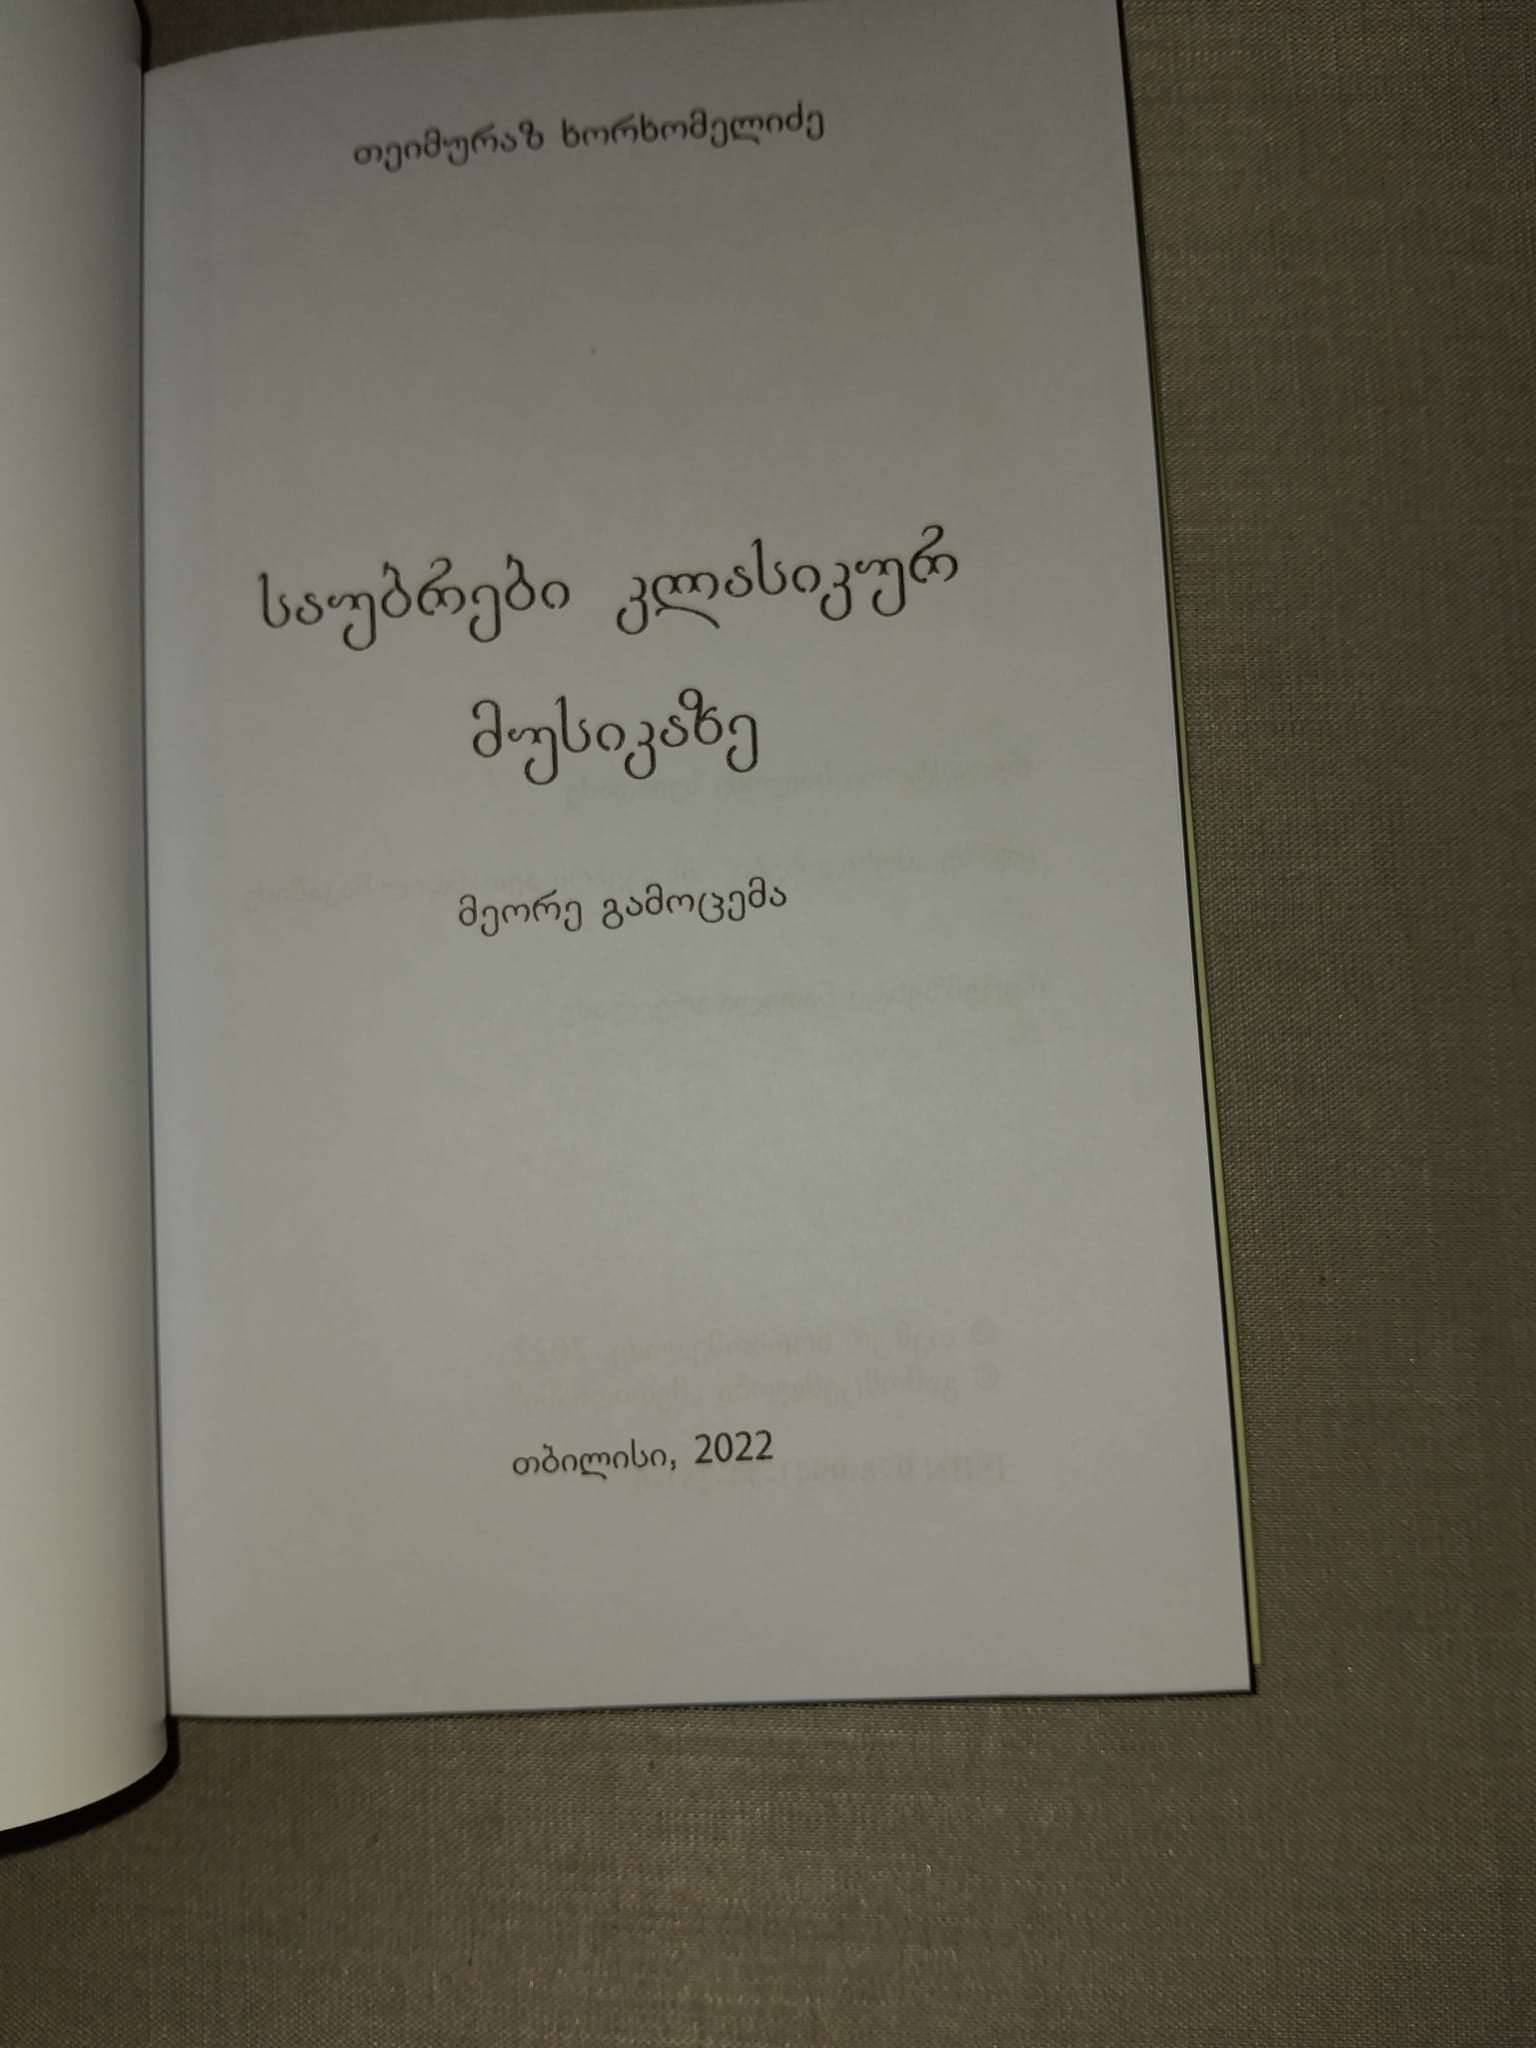 თეიმურაზ ხორხომელიძე
საუბრები კლასიკურ
მუსიკაზე
მეორე გამოცემა
თბილისი, 2022